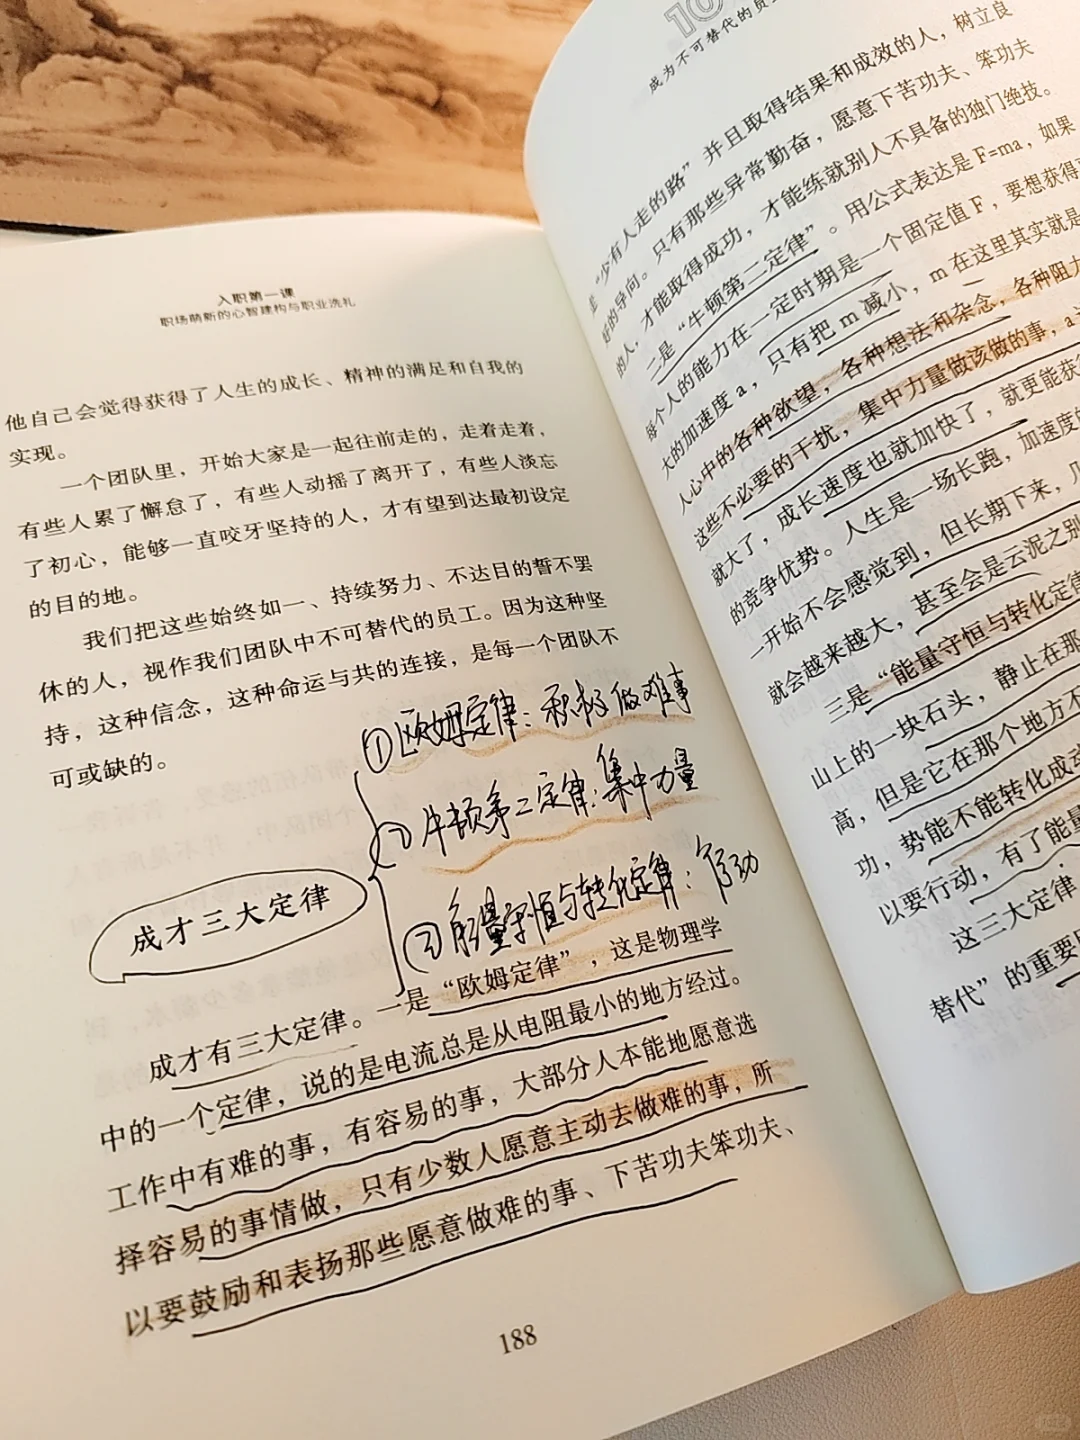 入职第一课
职场萌新的心智建构与职业洗礼
他自己会觉得获得了人生的成长、精神的满足和自我的
实现。
一个团队里，开始大家是一起往前走的，走着走着，
有些人累了懈怠了，有些人动摇了离开了，有些人淡忘
了初心，能够一直咬牙坚持的人，才有望到达最初设定
的目的地。
我们把这些始终如一、持续努力、不达目的誓不罢
休的人，视作我们团队中不可替代的员工。因为这种坚
持，这种信念，这种命运与共的连接，是每一个团队不
可或缺的。
①欧姆定律：积极做难事
②牛顿第二定律：集中力量
成才三大定律
③能量守恒与转化定律：行动
成才有三大定律。一是“欧姆定律”，这是物理学
中的一个定律，说的是电流总是从电阻最小的地方经过。
工作中有难的事，有容易的事，大部分人本能地愿意选
择容易的事情做，只有少数人愿意主动去做难的事，所
以要鼓励和表扬那些愿意做难的事、下苦功夫笨功夫、
188
10
成为不可替代的员
走“少有人走的路”并且取得结果和成效的人，树立良
好的导向。只有那些异常勤奋，愿意下苦功夫、笨功夫
的人，才能取得成功，才能练就别人不具备的独门绝技。
二是“牛顿第二定律”。用公式表达是F=ma，如果
每个人的能力在一定时期是一个固定值F，要想获得
大的加速度a，只有把m减小，m在这里其实就是
人心中的各种欲望，各种想法和杂念，各种阻力
这些不必要的干扰，集中力量做该做的事，a
就大了，成长速度也就加快了，就更能获
的竞争优势。人生是一场长跑，加速度的
一开始不会感觉到，但长期下来，几
就会越来越大，甚至会是云泥之别
三是“能量守恒与转化定律
山上的一块石头，静止在那
高，但是它在那个地方不
功，势能不能转化成动
以要行动，有了能量
这三大定律
替代”的重要